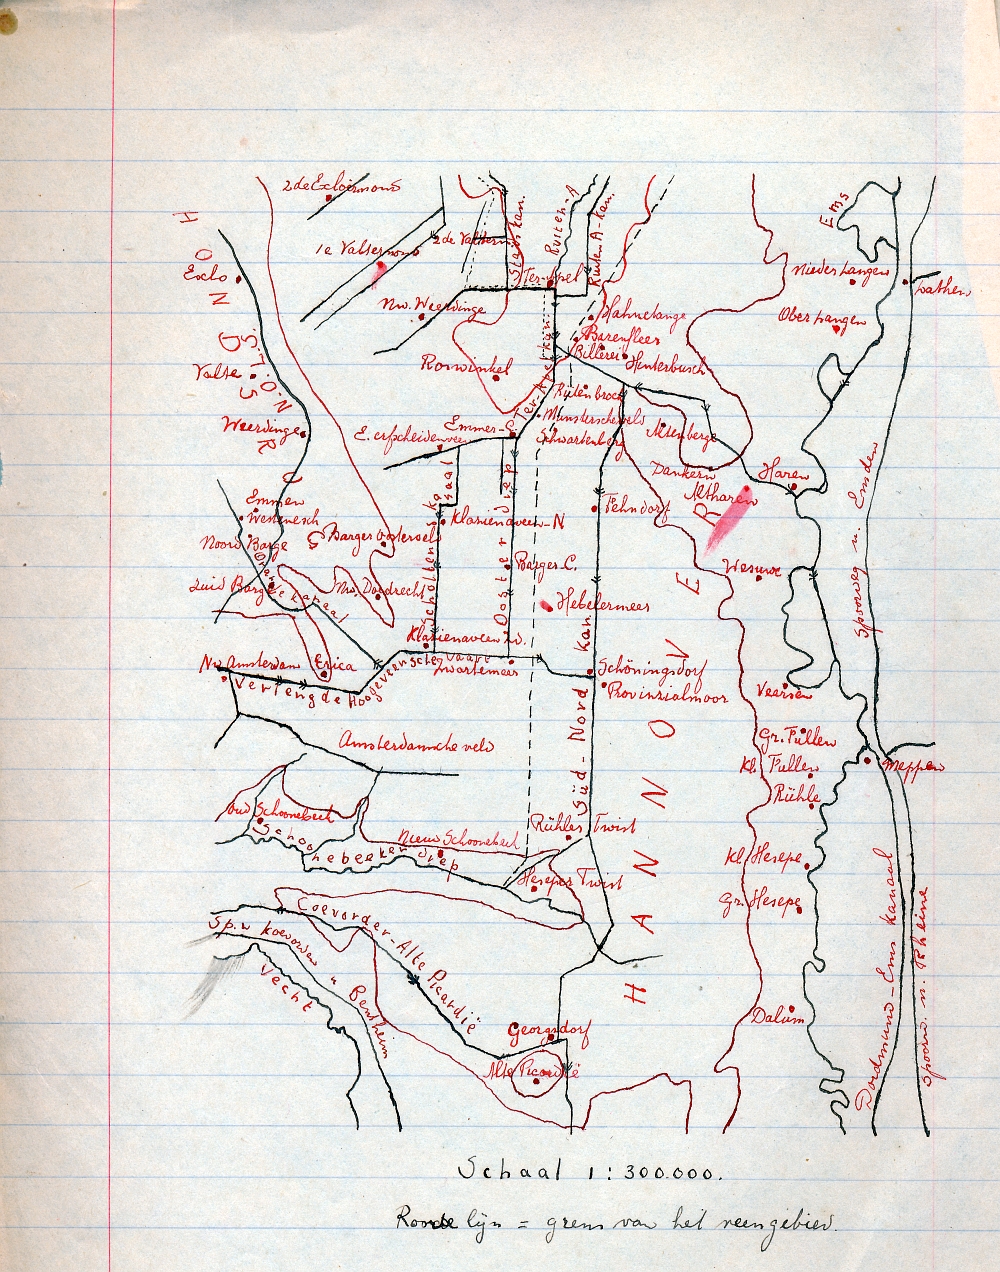 2de Exloërmond
1e Valtermond
2de Valterm.
Stads kan.
Ruiten-A
Ruiten A-kan.
Ems
Exlo
HONDSRUG
Ter-Apel
Nieder Langen
Lathen
Nw. Weerdinge
Hahnetange
Ober Langen
Barenfleer
Billerei
Hinterbusch
Roswinkel
Valte
Ter-Apel kan.
Rütenbrock
Weerdinge
Emmer-C.
Munsterscheveld
Schwartenberg
Altenberge
E. erfscheidenveen
Dankern
Haren
Altharen
Emmen
Westenesch
Noord Barge
Barger Oosterveld
Klazienaveen-N
Fehndorf
Scholtenskanaal
Oosterdiep
Barger-C.
Wesuwe
Zuid Barge
Oranjekanaal
Nw. Dordrecht
Hebelermeer
Klazienaveen
Zwartemeer
Nw. Amsterdam
Erica
Verlengde Hoogeveensche Vaart
Schöningsdorf
Provinzialmoor
Versen
Amsterdamsche veld
Süd-Nord kan.
HANNOVER
Gr. Fullen
Kl. Fullen
Meppen
Rühle
Oud Schoonebeek
Nieuw Schoonebeek
Schoonebeeker diep
Rühler Twist
Heseper Twist
Kl. Hesepe
Gr. Hesepe
Coevorder-Alte Picardië
Sp. n. Koevorden n. Bentheim
Vecht
Georgsdorf
Alte Picardië
Dalum
Dordmund-Ems kanaal
Spoorw. n. Rheine
Spoorweg n. Emden
Schaal 1:300.000.
Roode lijn = grens van het veengebied.